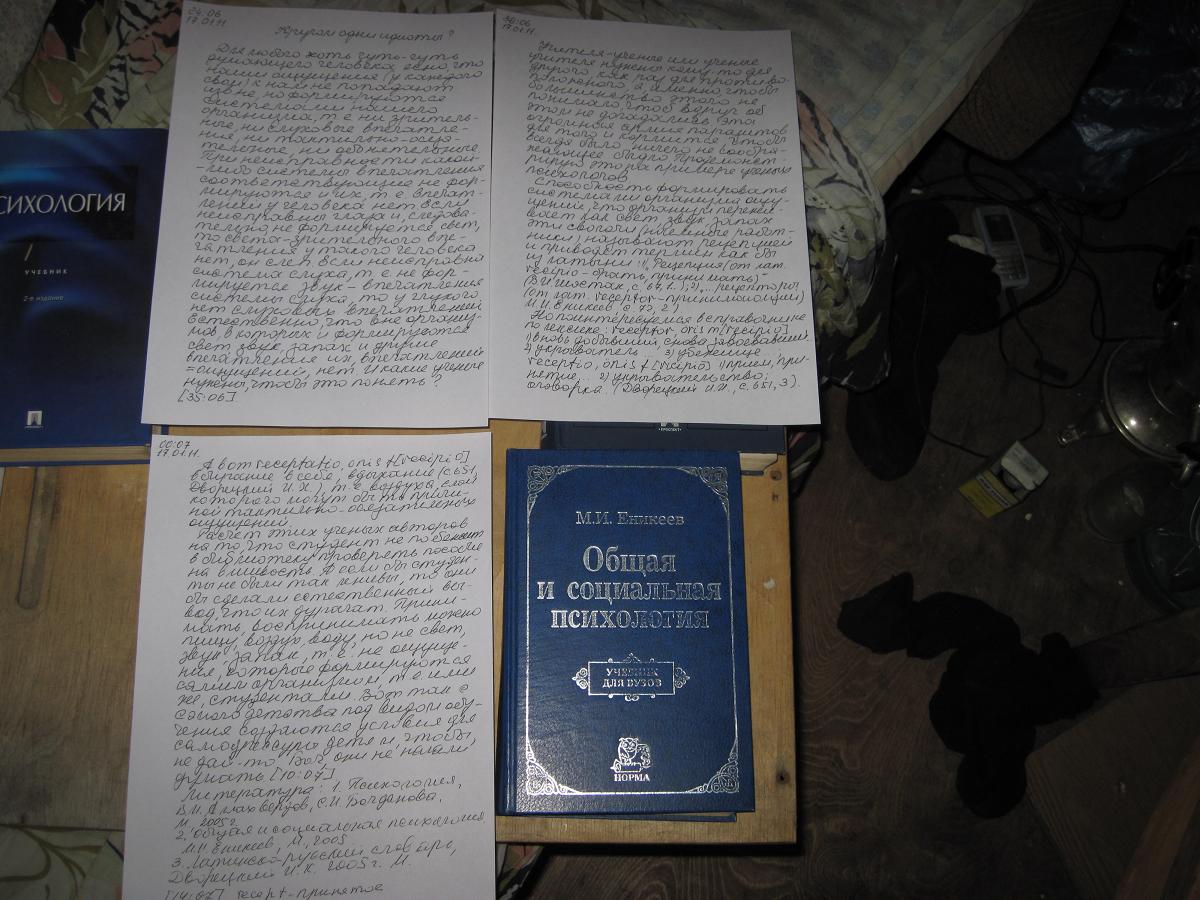 24:06
17.01.11.
Кругом одни идиоты?
Для любого хоть чуть-чуть
думающего человека ясно, что
наши ощущения (у каждого
свои) к нам не попадают
извне, но формируются
системами нашего
организма, т.е. ни зритель-
ные, ни слуховые впечатле-
ния, ни тактильно-осяза-
тельные, ни обонятельные.
При неисправности какой-
-либо системы впечатления
соответствующие не фор-
мируются и их, т.е. впечат-
лений у человека нет. Если
неисправны глаза и, следова-
тельно, не формируется свет,
то света-зрительного впе-
чатления у такого человека
нет, он слеп. Если неисправна
система слуха, т.е. не фор-
мируется звук-впечатления
системы слуха, то у глухого
нет слуховых впечатлений.
Естественно, что вне организ-
мов в которых и формируются
свет, звук, запах и другие
впечатления их, впечатлений
=ощущений, нет. И какие ученые
нужны, чтобы это понять?
[35:06]
36:06
17.01.11.
Учителя-ученые или ученые
учителя нужны кому-то для
другого, как раз для противо-
положного, а именно, чтобы
большинство этого не
понимало, чтоб вдруг об
этом не догадались. Эта
огромная армия паразитов
для того и кормится, чтобы
всегда было ничего не сообра-
жающее быдло. Продемонст-
рирую это на примере ученых
психологов.
Способность формировать
системами организма ощу-
щения, что организм пережи-
вает как свет, звук, запах
эти сволочи (наемные работ-
ники) называют рецепцией
и приводят термин как бы
из латыни: 1) "Рецепция (от лат.
recipio - брать, принимать)-
В.И. Шостак, с. 67, 1.); 2) "...рецепторов
(от лат. receptor-принимающий)
М.И. Еникеев, с. 73, 2)
Но поинтересуемся в справочнике
по лексике: receptor, oris m [recipio]
1) вновь добывший, снова завоевавший
2) укрыватель 3) убежище
receptio, onis f [recipio] 1) прием, при-
нятие 2) укрывательство;
оговорка. (Дворецкий И.Х., с. 651, 3).
00:07
17.01.11.
А вот receptatio, onis f [recipio]
вбирание в себя, вдыхание (с. 651,
Дворецкий И.Х.) т.е. воздуха, слои
которого могут быть причи-
ной тактильно-осязательных
ощущений.
Расчет этих ученых авторов
на то, что студент не побежит
в библиотеку проверять пособие
на вшивость. А если бы студен-
ты не были так ленивы, то они
бы сделали естественный вы-
вод, что их дурачат. Прини-
мать, воспринимать можно
пищу, воздух, воду, но не свет,
звук, запах, т.е. не ощуще-
ния, которые формируются
самим организмом, т.е. ими
же, студентами. Вот так с
самого детства под видом обу-
чения создаются условия для
самодрессуры детей, чтобы,
не дай-то Бог они не начали
думать. [10:07]
Литература: 1. Психология,
В.М. Аллахвердов, С.И. Богданова,
М. 2005 г.
2. Общая и социальная психология
М.И. Еникеев, М., 2005
3. Латинско-русский словарь,
Дворецкий И.Х. 2005 г. М.
[14:07] recept-принятое
СИХОЛОГИЯ
УЧЕБНИК
2-е издание
ПРОСПЕКТ
М.И. Еникеев
Общая
и социальная
психология
УЧЕБНИК
ДЛЯ ВУЗОВ
НОРМА